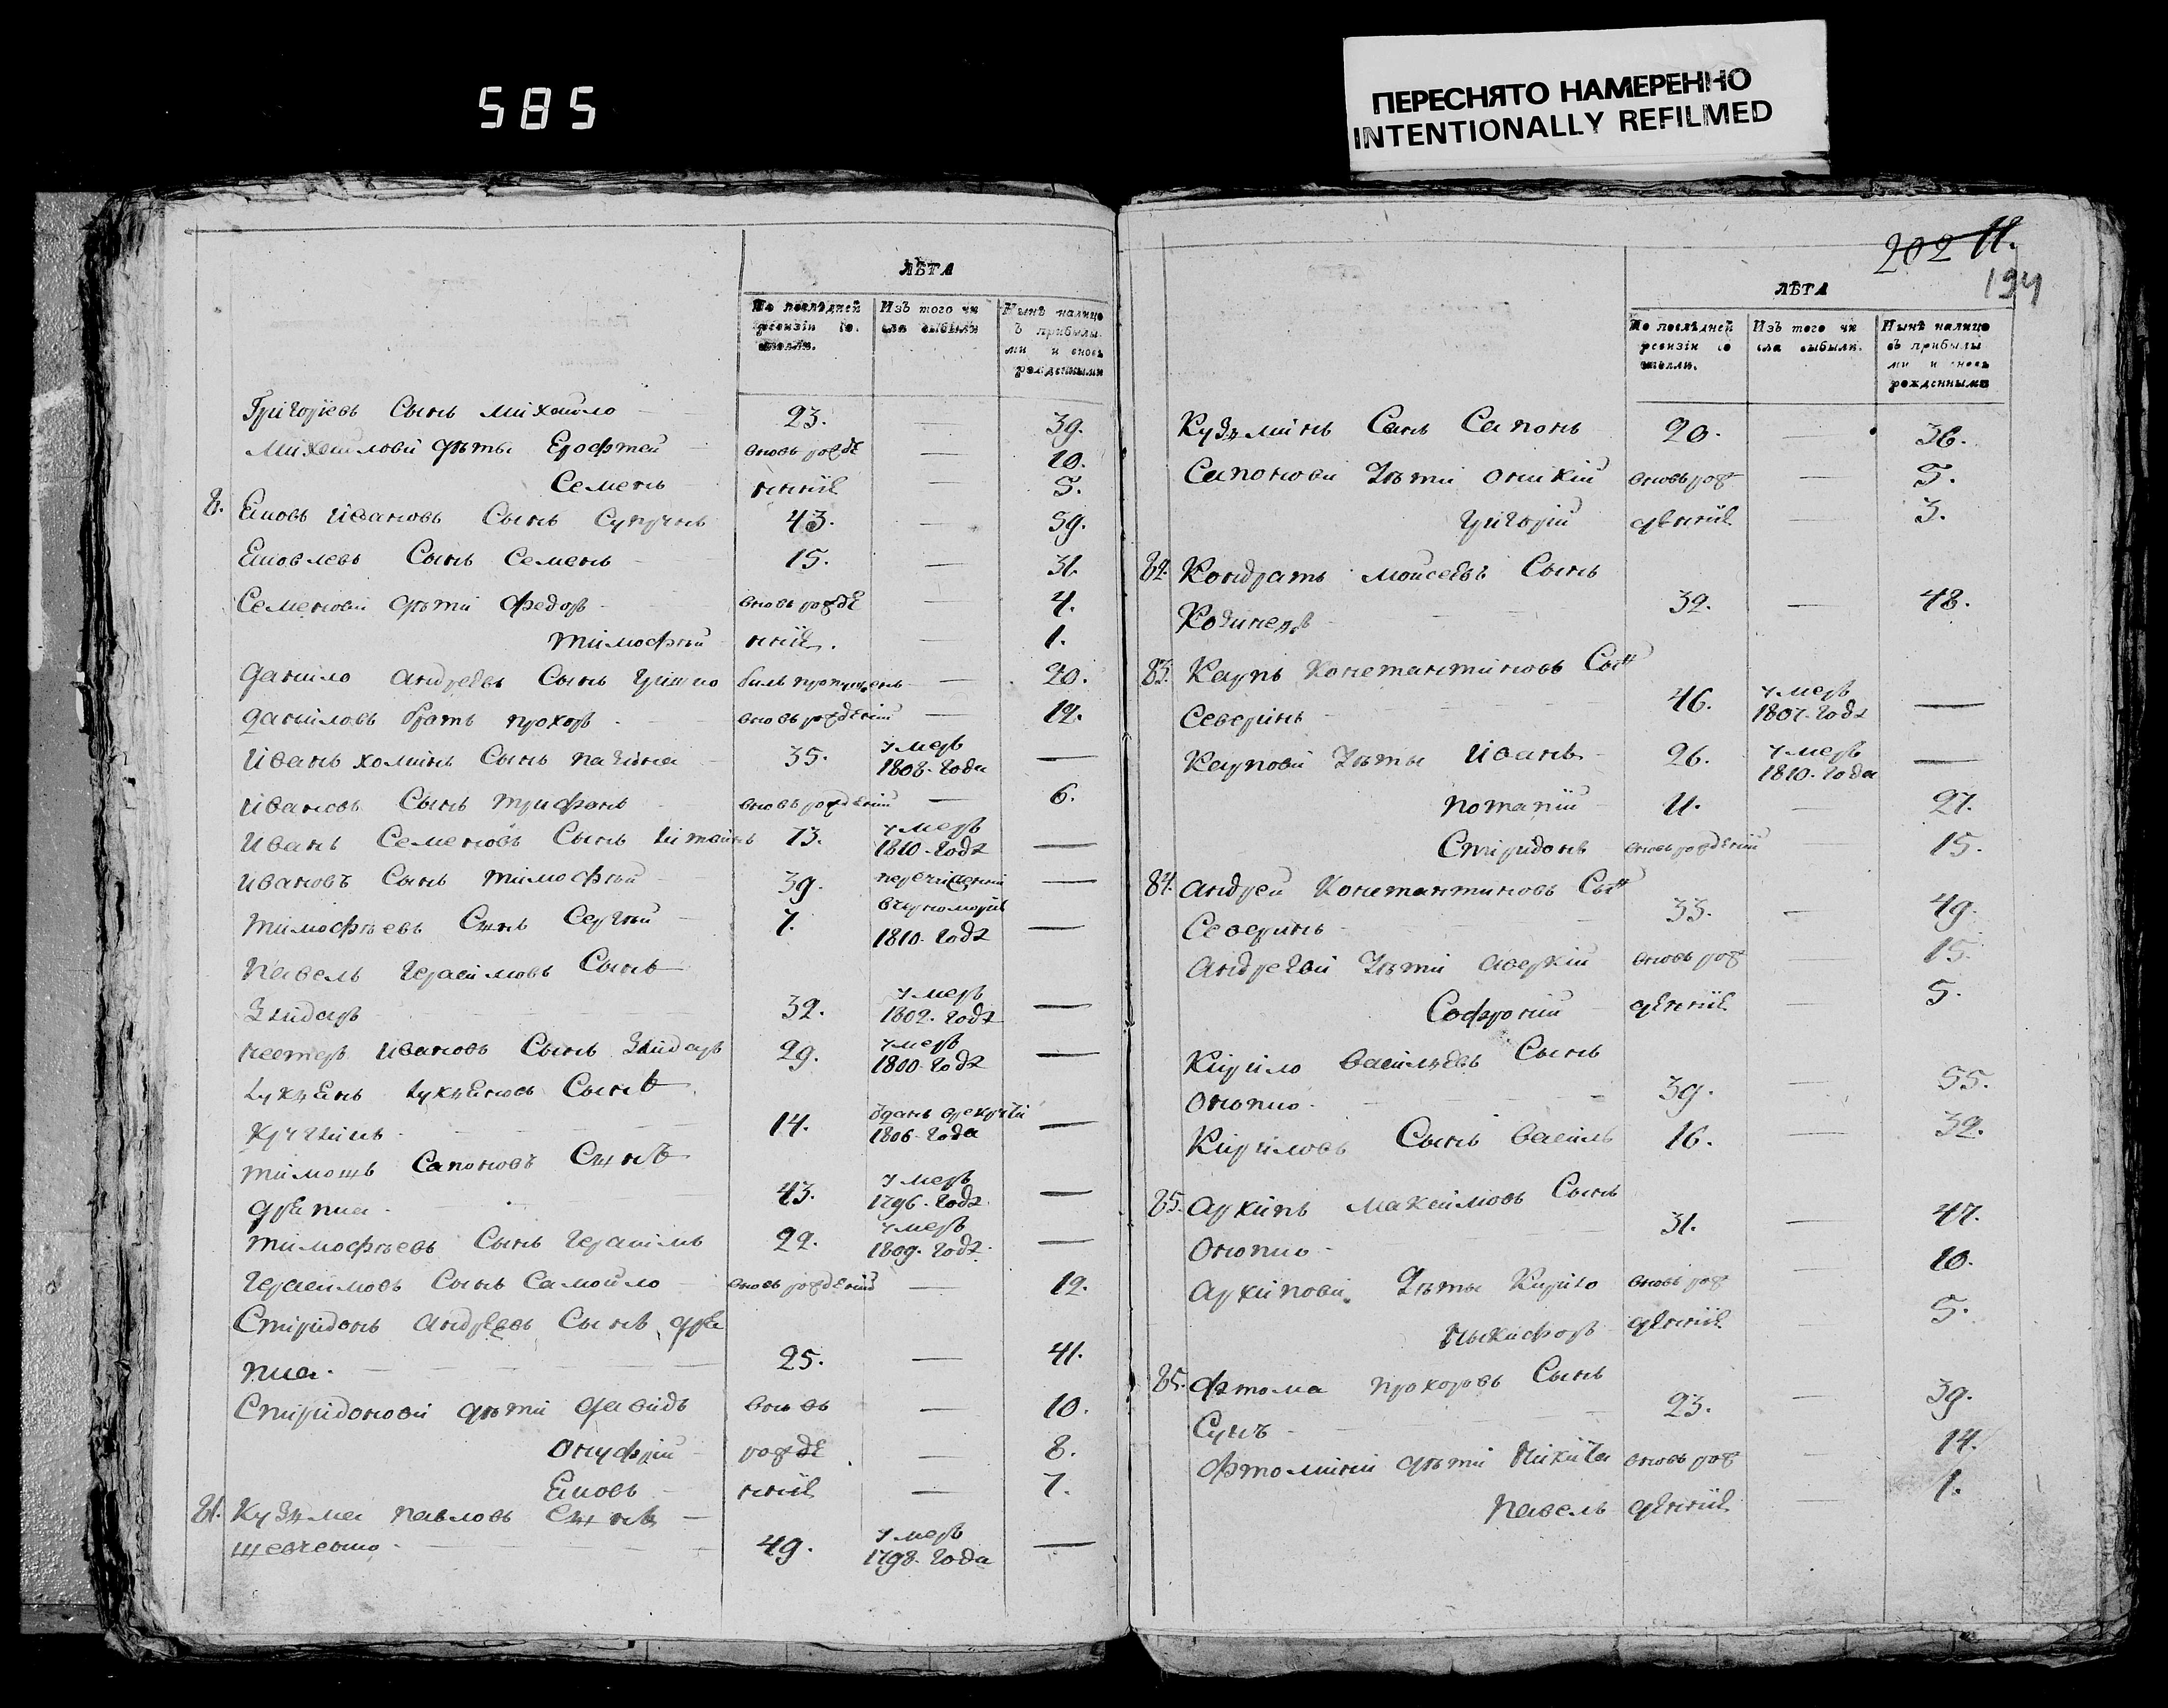 585
ПЕРЕСНЯТО НАМЕРЕННО
INTENTIONALLY REFILMED
ЛѢТА
По послѣдней ревизіи состояли.
Изъ того числа выбыли
Нынѣ налицо съ прибылыми и вновь рожденными
Григорїевъ Сынъ Михайло 23. — 39.
Михайлови дѣты Ерофтей вновь рожде — 10.
Семенъ ннїе — 5.
8. Яковъ Ивановъ Сынъ Супрунъ 43. — 59.
Яковлевъ Сынъ Семенъ 15. — 31.
Семенови дѣти Федоръ вновь рожде — 4.
Тимофѣй ннїе. — 1.
Данило Андреевъ Сынъ билъ пропущенъ — 20.
Даниловъ братъ Прохоръ вновь рожденїй — 12.
Иванъ Хоминъ Сынъ 35. умеръ 1808. Года —
Ивановъ Сынъ Трифонъ вновь рожденїй — 6.
Иванъ Семеновъ Сынъ 73. умеръ 1810. Года —
Ивановъ Сынъ Тимофѣй 39. —
Тимофѣевъ Сынъ Сергѣй 7. 1810. Года —
Павелъ Герасимовъ Сынъ
32. умеръ 1802. Года —
Нестеръ Ивановъ Сынъ 29. умеръ 1800. Года —
Лукянъ Лукяновъ Сынъ
14. 1806. Года —
Тимошъ Сапоновъ Сынъ
Дряпиа 43. умеръ 1796. Года —
Тимофѣевъ Сынъ Герасимъ 22. умеръ 1809. Года —
Герасимовъ Сынъ Самойло вновь рожденїй — 12.
Спиридонъ Андреевъ Сынъ Дря
пиа 25. — 41.
Спиридонови дѣти Давидъ вновь — 10.
Онуфрій рожде — 8.
Яковъ ннїе — 7.
81. Кузьма Павловъ Сынъ
Шевченко 49. умеръ 1798. Года —
202 11.
194
ЛѢТА
По послѣдней ревизіи состояли.
Изъ того числа выбыли.
Нынѣ налицо съ прибылыми и вновь рожденными
Кузьминъ Синъ Сапонъ 20. — 36.
Сапонови дѣти Оникїй вновь рож — 5.
Григорїй денниїе — 3.
82. Кондратъ Моисеевъ Сынъ
39. — 48.
83. Карпъ Константиновъ Сын
Северинъ 46. умеръ 1807. Года —
Карпови дѣты Иванъ 26. умеръ 1810. Года —
Потапїй 11. — 27.
Спиридонъ вновь рожденїй — 15.
84. Андрей Константиновъ Сын
Северинъ 33. — 49.
Андреѣви дѣти Аверкїй вновь рож — 15.
Софронїй деннїе — 5.
Кирило Васильевъ Сынъ
Онопко 39. — 55.
Кириловъ Сынъ Василь 16. — 32.
85. Архипъ Максимовъ Сынъ
Онопко 31. — 47.
Архипови дѣты Кирило вновь рож — 10.
Никифоръ деннїе — 5.
85. Фтома Прохоровъ Сынъ
23. — 39.
Фтомини дѣти Никита вновь рож — 14.
Павелъ деннїе — 1.